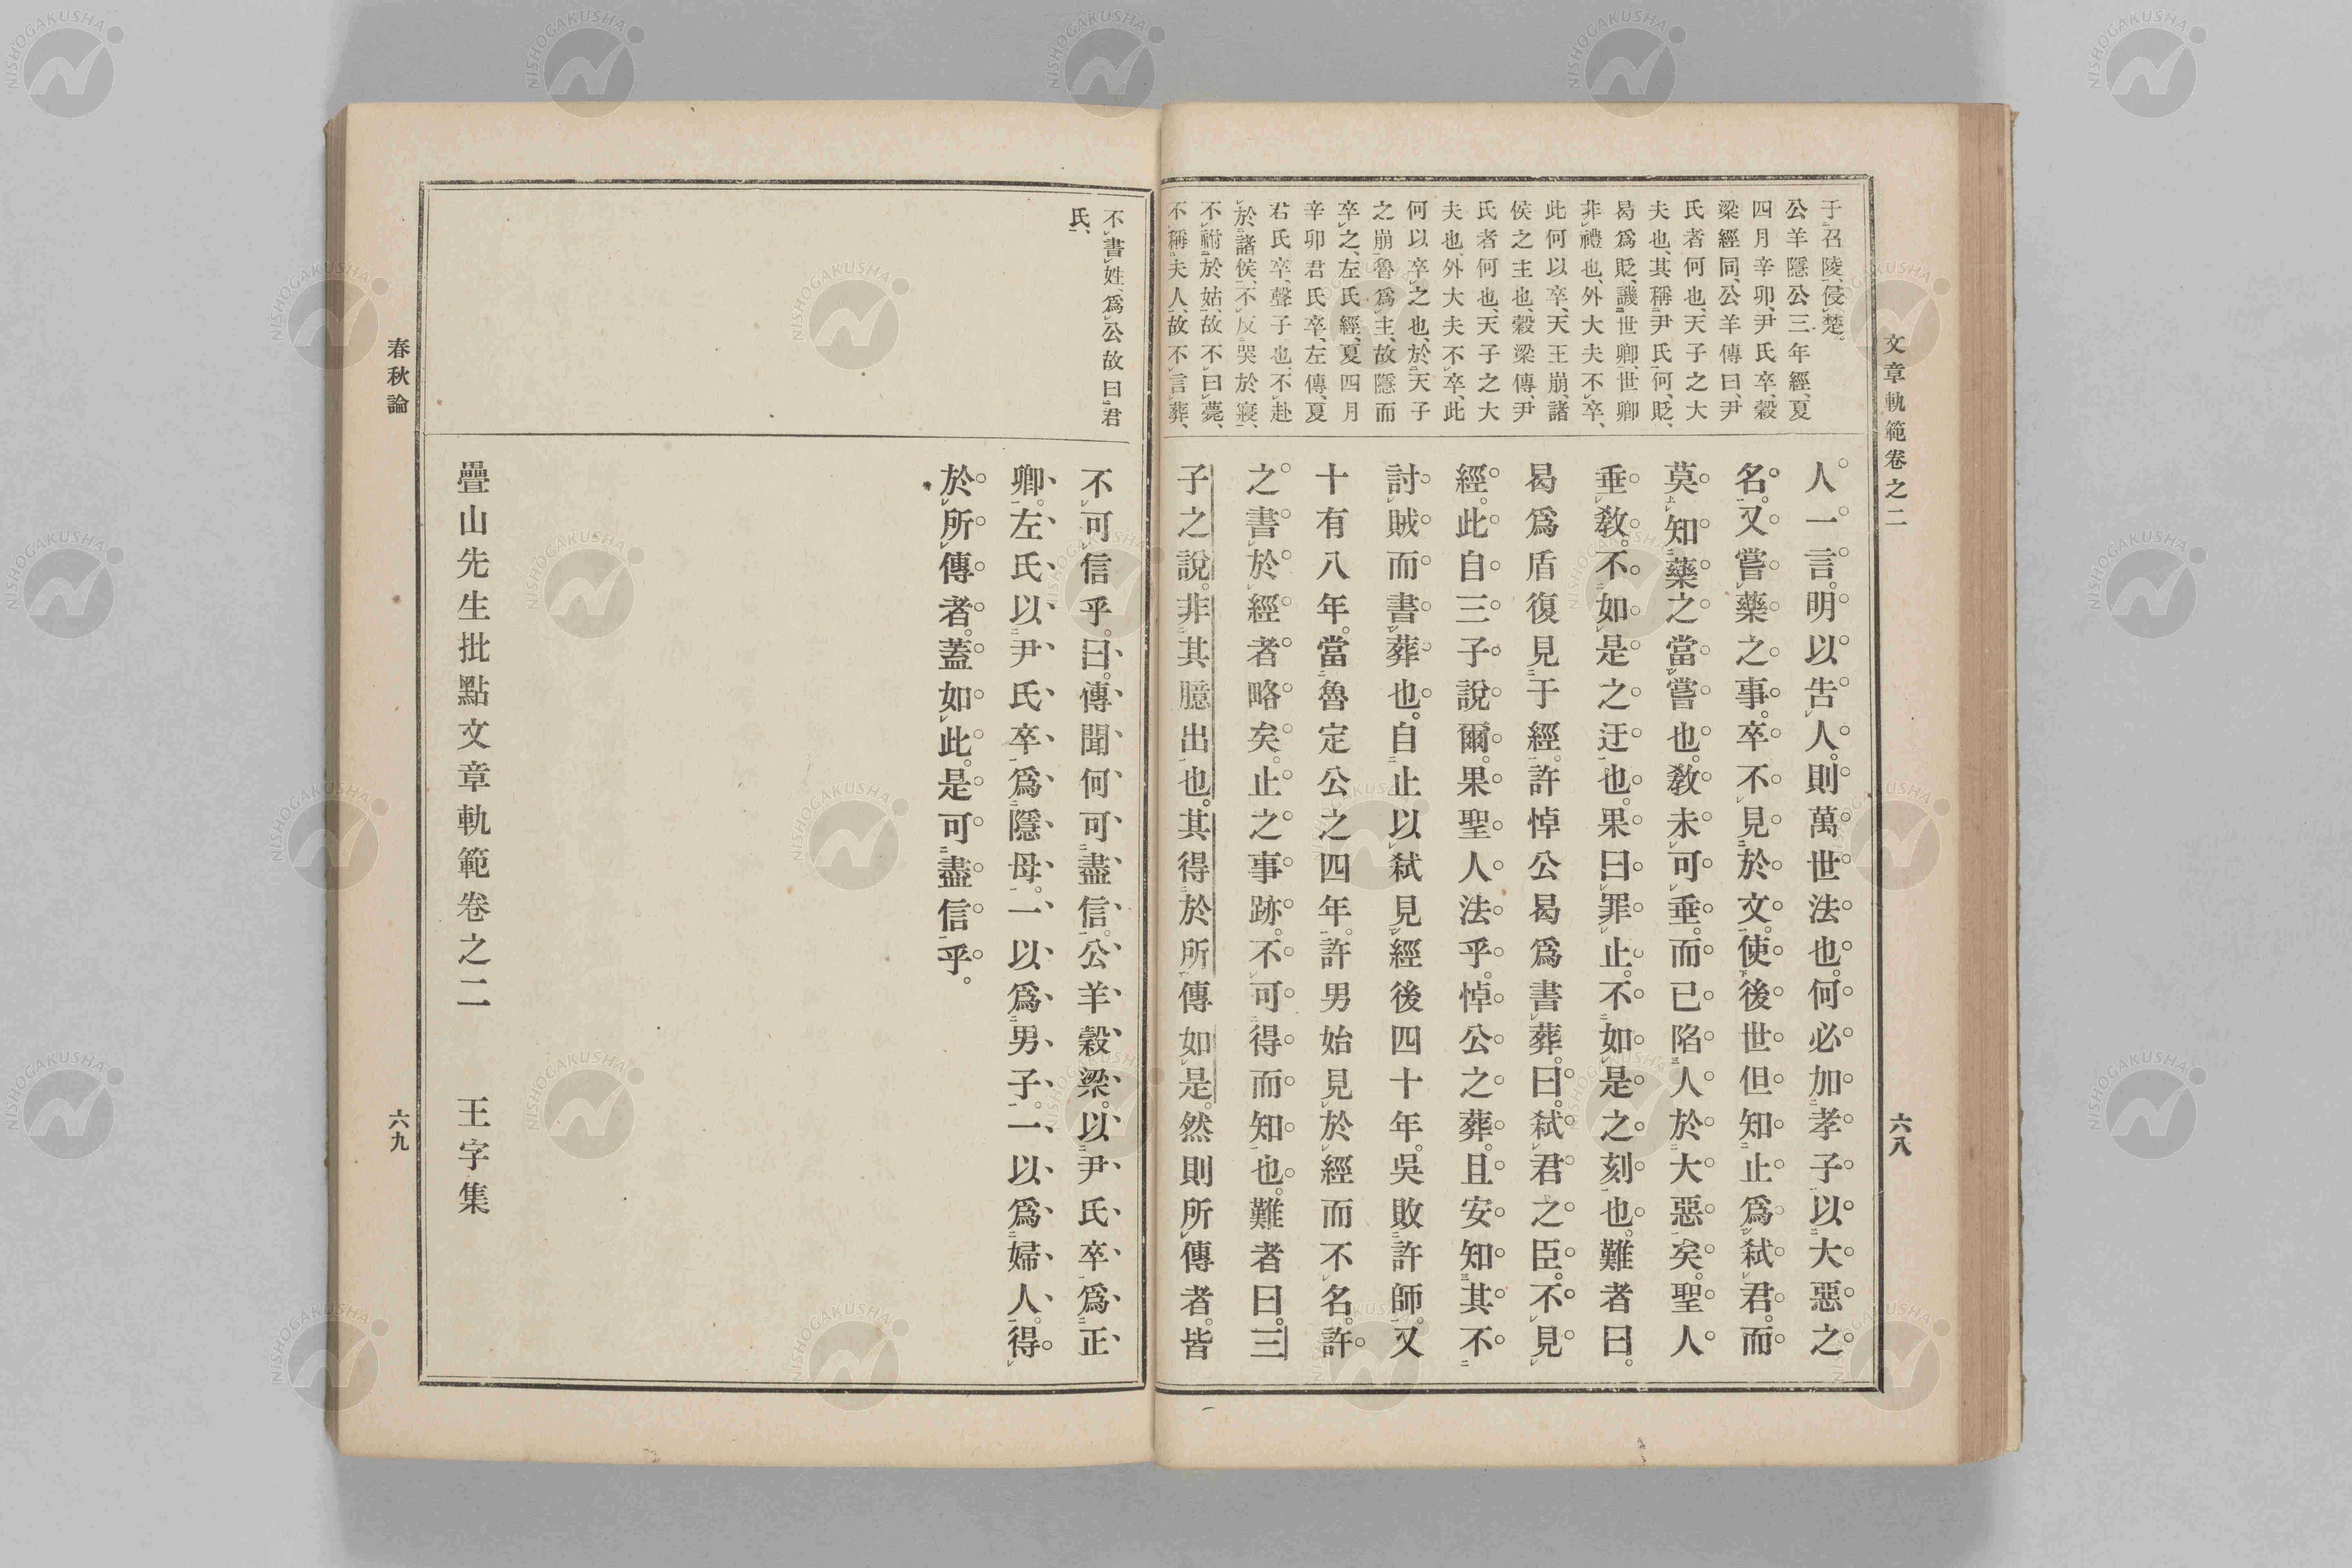 文章軌範卷之二
六八
于召陵、侵楚。
公羊隱公三年經、夏
四月辛卯、尹氏卒、穀
梁經同、公羊傳曰、尹
氏者何也、天子之大
夫也、其稱尹氏何、貶、
曷爲貶、譏世卿、世卿
非禮也、外大夫不卒、
此何以卒、天王崩、諸
侯之主也、穀梁傳、尹
氏者何也、天子之大
夫也、外大夫不卒、此
何以卒之也、於天子
之崩魯爲主、故隱而
卒之、左氏經、夏四月
辛卯君氏卒、左傳、夏
君氏卒、聲子也、不赴
於諸侯、不反哭於寢、
不祔於姑、故不曰薨、
不稱夫人、故不言葬、
人一言。明以告人。則萬世法也。何必加孝子以大惡之
名。又嘗藥之事。卒不見於文。使後世但知止爲弑君。而
莫知藥之當嘗也。敎未可垂。而已陷人於大惡矣。聖人
垂敎。不如是之迂也。果曰罪止。不如是之刻也。難者曰。
曷爲盾復見于經。許悼公曷爲書葬。曰。弑君之臣。不見
經。此自三子說爾。果聖人法乎。悼公之葬。且安知其不
討賊而書葬也。自止以弑見經後四十年。吳敗許師。又
十有八年。當魯定公之四年。許男始見於經而不名。許
之書於經者略矣。止之事跡。不可得而知也。難者曰。三
子之說。非其臆出也。其得於所傳如是。然則所傳者。皆
不書姓、爲公故曰君
氏、
不可信乎。曰。傳聞何可盡信。公羊穀梁。以尹氏卒爲正
卿。左氏以尹氏卒爲隱母。一以爲男子。一以爲婦人。得
於所傳者。蓋如此。是可盡信乎。
疊山先生批點文章軌範卷之二 王字集
春秋論
六九